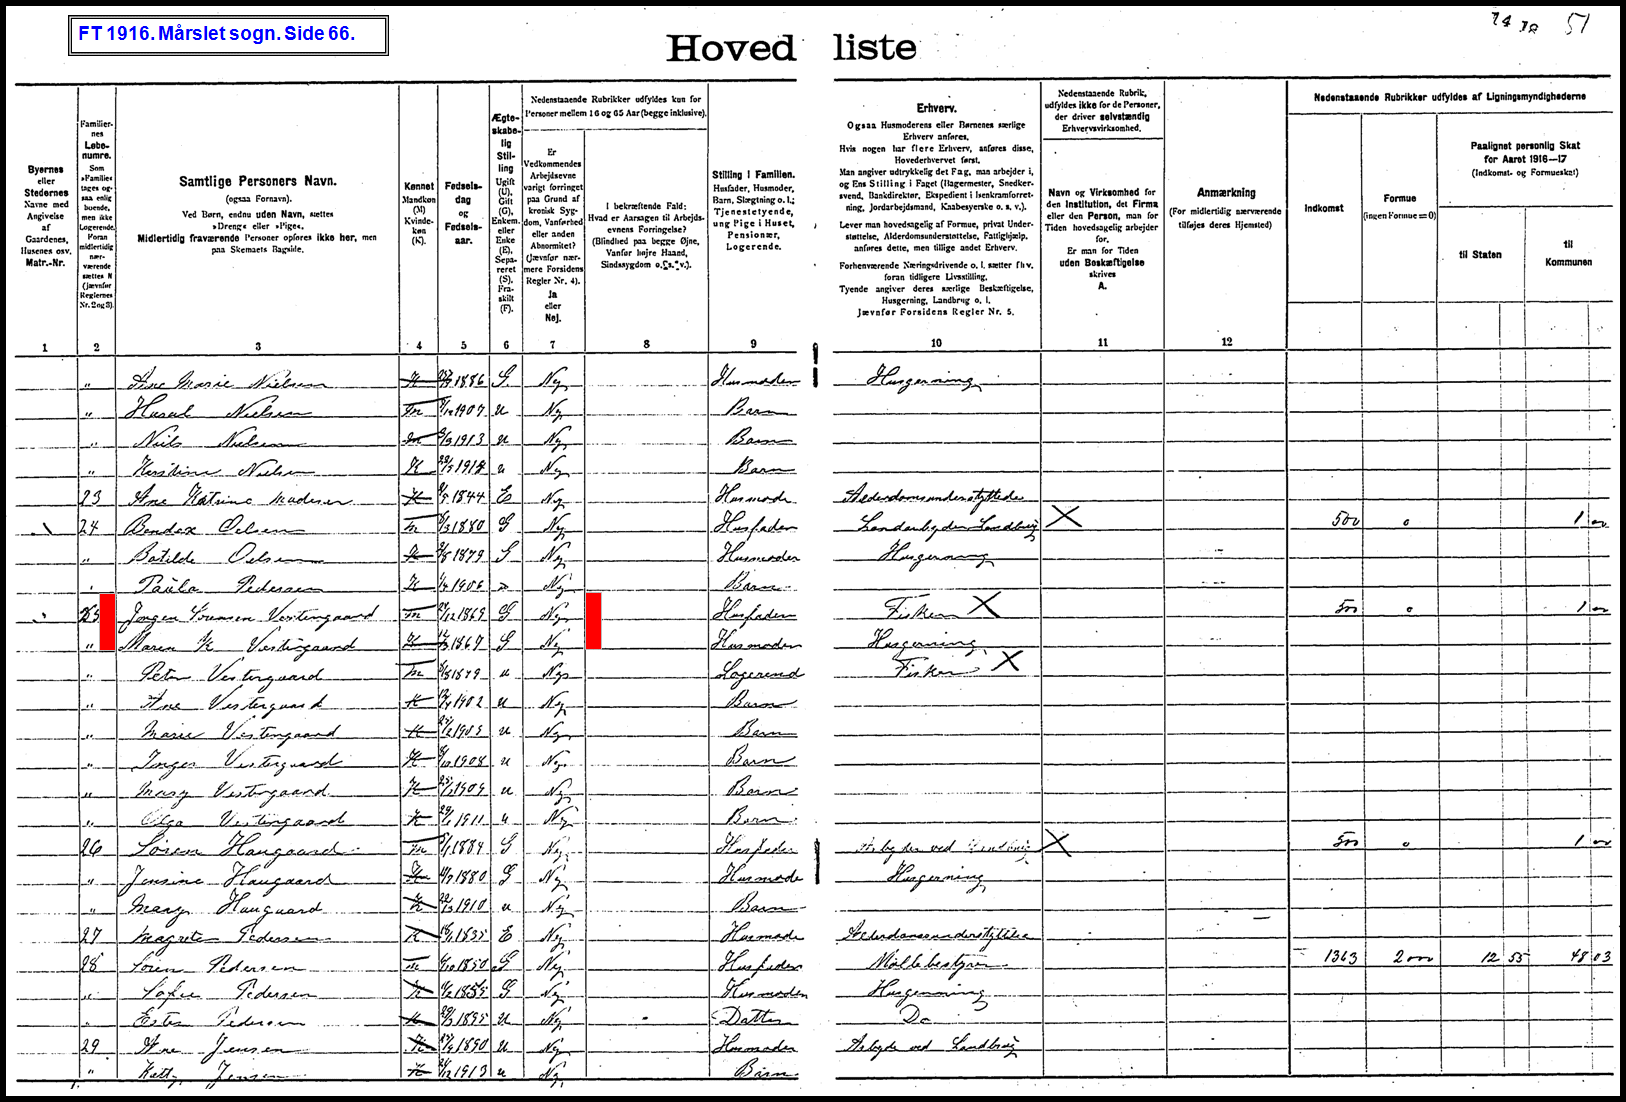 FT 1916. Mårslet sogn. Side 66.
51
Hoved liste
Byernes
eller
Stedernes
Navne med
Angivelse
af
Gaardenes,
Husenes osv.
Matr.-Nr.
Familier-
nes
Løbe-
numre.
Som
»Familie«
tages og-
saa enlig
boende,
men ikke
Logerende.
Foran
midlertidig
nær-
værende
sættes N
(jævnfør
Reglernes
Nr. 2 og 3).
Samtlige Personers Navn.
(ogsaa Fornavn).
Ved Børn, endnu uden Navn, sættes
»Dreng« eller »Pige«.
Midlertidig fraværende Personer opføres ikke her, men
paa Skemaets Bagside.
Kønnet
Mandkøn
(M)
Kvinde-
køn
(K).
Fødsels-
dag
og
Fødsels-
aar.
Ægte-
skabe-
lig
Stil-
ling
Ugift
(U),
Gift
(G),
Enkem.
eller
Enke
(E),
Sepa-
reret
(S),
Fra-
skilt
(F).
Nedenstaaende Rubrikker udfyldes kun for
Personer mellem 16 og 65 Aar (begge inklusive).
Er
Vedkommendes
Arbejdsevne
varigt forringet
paa Grund af
kronisk Syg-
dom, Vanførhed
eller anden
Abnormitet?
(Jævnfør nær-
mere Forsidens
Regler Nr. 4).
Ja
eller
Nej.
I bekræftende Fald:
Hvad er Aarsagen til Arbejds-
evnens Forringelse?
(Blindhed paa begge Øjne,
Vanfør højre Haand,
Sindssygdom o. s. v.).
Stilling i Familien.
Husfader, Husmoder,
Barn, Slægtning o. l.;
Tjenestetyende,
ung Pige i Huset,
Pensionær,
Logerende.
Erhverv.
Ogsaa Husmoderens eller Børnenes særlige
Erhverv anføres.
Hvis nogen har flere Erhverv, anføres disse,
Hovederhvervet først.
Man angiver udtrykkelig det Fag, man arbejder i,
og Ens Stilling i Faget (Bagermester, Snedker-
svend, Bankdirektør, Ekspedient i Isenkramforret-
ning, Jordarbejdsmand, Kaabesyerske o. s. v.).
Lever man hovedsagelig af Formue, privat Under-
støttelse, Alderdomsunderstøttelse, Fattighjælp,
anføres dette, men tillige andet Erhverv.
Forhenværende Næringsdrivende o. l. sætter fhv.
foran tidligere Livsstilling.
Tyende angiver deres særlige Beskæftigelse,
Husgerning, Landbrug o. l.
Jævnfør Forsidens Regler Nr. 5.
Nedenstaaende Rubrik,
udfyldes ikke for de Personer,
der driver selvstændig
Erhvervsvirksomhed.
Navn og Virksomhed for
den Institution, det Firma
eller den Person, man for
Tiden hovedsagelig arbejder
for.
Er man for Tiden
uden Beskæftigelse
skrives
A.
Anmærkning
(For midlertidig nærværende
tilføjes deres Hjemsted)
Nedenstaaende Rubrikker udfyldes af Ligningsmyndighederne
Indkomst
Formue
(ingen Formue = 0)
Paalignet personlig Skat
for Aaret 1916—17
(Indkomst- og Formueskat)
til Staten
til
Kommunen
1 2 3 4 5 6 7 8 9 10 11 12
" Ane Marie Nielsen K 1886 G Nej Husmoder Husgerning
" Haral Nielsen m 1907 u Nej Barn
" Niels Nielsen m 1913 u Nej Barn
" Kristine Nielsen K u Nej Barn
23 Ane Katrine Madsen K 1844 E Nej Husmode
24 Bendex Oelsen m 1880 G Nej Husfader X 500 0 1 00
" Botilde Oelsen K 1879 G Nej Husmoder Husgerning
" Paula Pedersen K 1906 Nej Barn
25 Jørgen Sørensen Vestergaard m 1869 G Nej Husfader Fisker X 500 0 1 00
" Maren K Vestergaard K 1867 G Nej Husmoder Husgerning
" Peter Vestergaard m 1879 u Nej Logerend Fisker X
" Ane Vestergaard K 1902 u Nej Barn
" Marie Vestergaard K 1905 u Nej Barn
" Inger Vestergaard K 1908 u Nej Barn
" Mary Vestergaard K 1909 u Nej Barn
" Olga Vestergaard K 1911 u Nej Barn
26 Søren Haugaard m 1884 G Nej Husfader Arbejder ved X 500 0 1 00
" Jensine Haugaard K 1880 G Nej Husmode Husgerning
" Mary Haugaard K 1910 u Nej Barn
27 Magrete Pedersen K 1835 E Nej Husmode
28 Søren Pedersen m 1850 G Nej Husfader Møllebestyrer 1363 2000 12 55 48 03
" Sofie Pedersen K 1855 G Nej Husmoder Husgerning
" Ester Pedersen K 1895 u Nej Datter Do
29 Ane Jensen K 1890 u Nej Husmoder Arbejde ved Landbrug
" Ketty Jensen K 1913 u Nej Barn